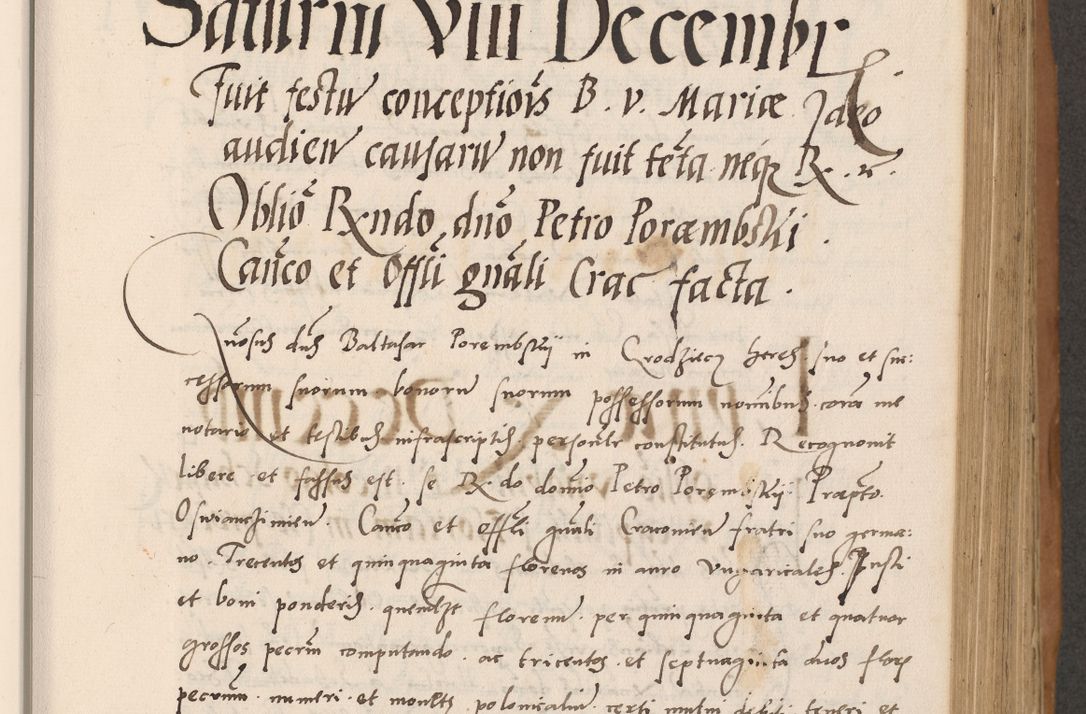 Saturni VIII Decembr
Fuit festu conceptiois B. v. Mariæ Ideo
audien causaru non fuit teta neqz Rx. r.
Oblio Rxndo dno Petro Poræmbski.
Canco et Offli gnali Crac facta.
nosus dns Baltasar Porembskij in Grodziecz heres suo et suc:
cessorum suorum bonoru suorum possessorum nominibus cora me
notario et testibus infrascriptis personlr constitutus. Recognovit
libere et fassus est. se Rx. do domno Petro Porembskij Præpto.
Oswianczimien. Canco et offli gnali Cracovien fratri suo germa:
no. Trecentos et quinquaginta florenos in auro Vngaricales Justi
et boni ponderis quemlzt florenu per quinquaginta et quatuor
grossos pecuniam computando. ac tricentos et septuaginta duos flore
pecuniae numeri et monets polonicaliu certi mutui debiti teneri et